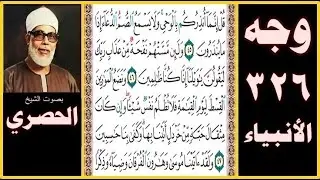 وجه
٣٢٦
الأنبياء
بصوت الشيخ
الحصري
قُلْ إِنَّمَا أُنذِرُكُم بِالْوَحْيِ وَلَا يَسْمَعُ الصُّمُّ الدُّعَاءَ إِذَا
مَا يُنذَرُونَ ٤٥ وَلَئِن مَّسَّتْهُمْ نَفْحَةٌ مِّنْ عَذَابِ رَبِّكَ
لَيَقُولُنَّ يَا وَيْلَنَا إِنَّا كُنَّا ظَالِمِينَ ٤٦ وَنَضَعُ الْمَوَازِينَ
الْقِسْطَ لِيَوْمِ الْقِيَامَةِ فَلَا تُظْلَمُ نَفْسٌ شَيْئًا وَإِن كَانَ
مِثْقَالَ حَبَّةٍ مِّنْ خَرْدَلٍ أَتَيْنَا بِهَا وَكَفَىٰ بِنَا حَاسِبِينَ
٤٧ وَلَقَدْ آتَيْنَا مُوسَىٰ وَهَارُونَ الْفُرْقَانَ وَضِيَاءً وَذِكْرًا